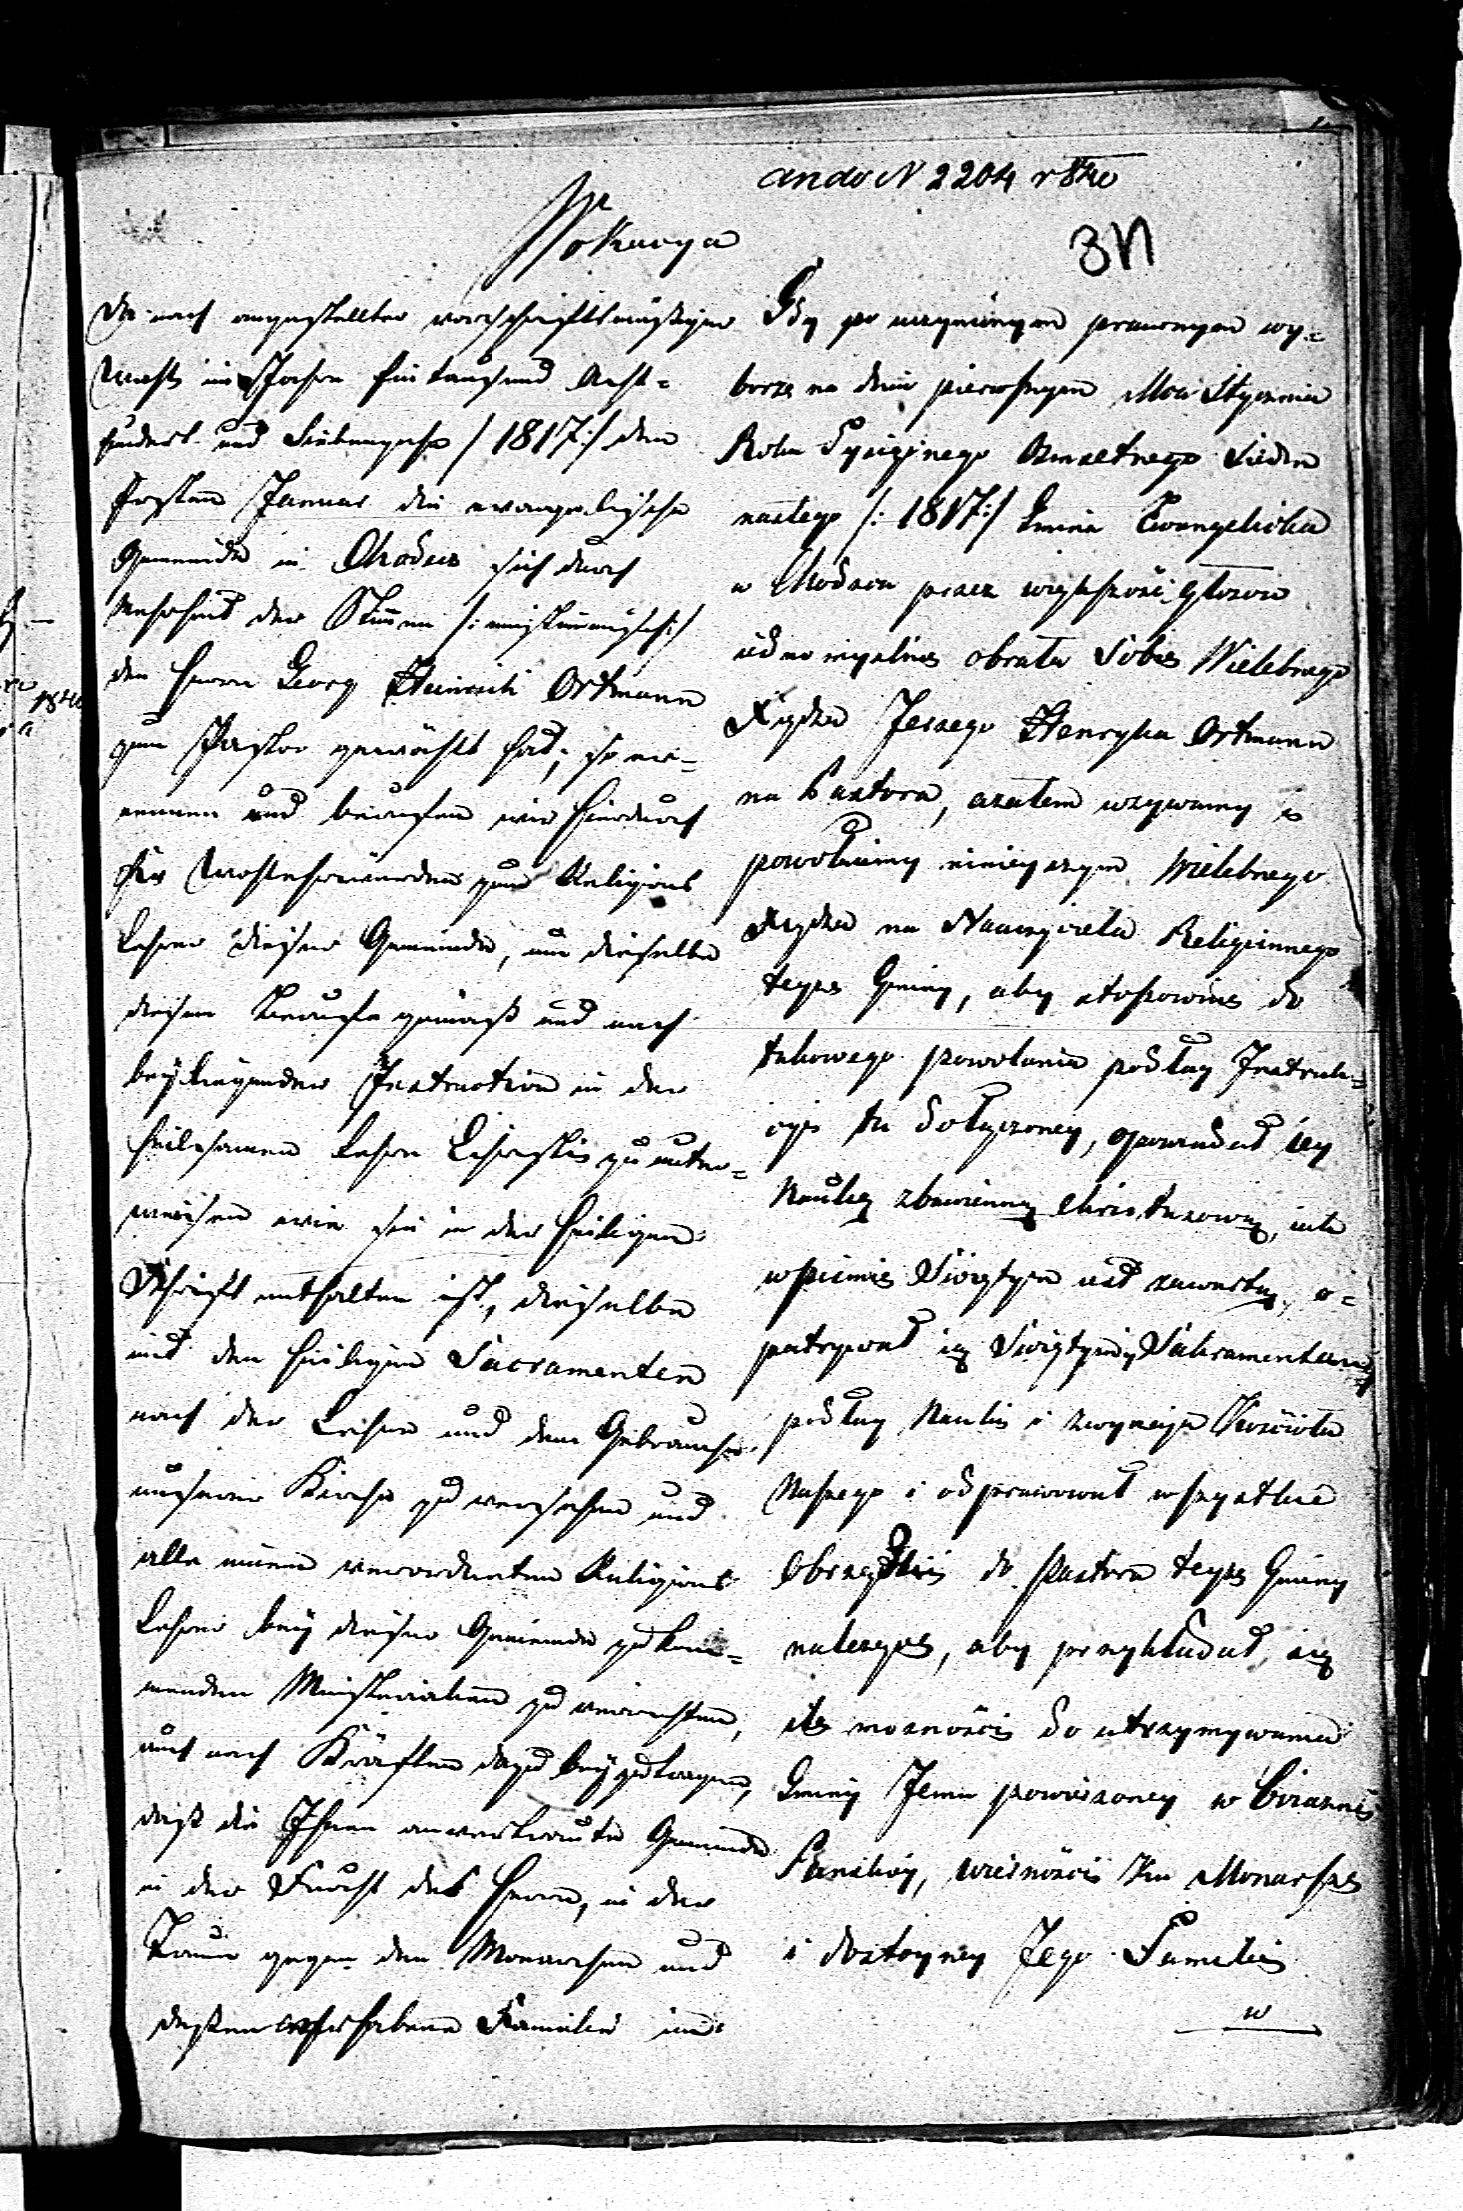 ando N 2204 r 840
3N
Wokacya
Da nach angestellter vorschriftsmäßiger
Wahl im Jahre Eintausend Acht-
hundert und Siebenzehn /:1817:/ den
Ersten Januar die evangelische
Gemeinde in Chodecz sich durch
Mehrheit der Stimmen /:einstimmig:/
den Herrn Georg Heinrich Ortmann
zum Pastor gewählt hat; so er-
nennen und berufen wir hierdurch
Ihr Wohlehrwürden zum Religions
Lehrer dieser Gemeinde, um dieselbe
diesem Berufe gemäß und nach
beyliegender Instruction in der
heilsamen Lehre Christi zu unter-
weisen wie sie in der heiligen
Schrift enthalten ist, dieselbe
mit den heiligen Sacramenten
nach der Lehre und dem Gebrauche
unserer Kirche zu versehen und
alle einem verordneten Religions
Lehrer bey dieser Gemeinde zukom-
menden Ministerialien zu verrichten,
auch nach Kräften dazu beyzutragen,
daß die Ihnen anvertraute Gemeinde
in der Furcht des Herrn, in der
Treue gegen den Monarchen und
dessen erhabene Familie und
Gdy po uczynionym prawnym wy-
borze na dniu pierwszym Mca Stycznia
Roku Tysiącznego Osmsetnego Siedm
nastego /:1817:/ Gmina Ewangelicka
w Chodczu przez większość głosow
iednomyslnie obrała Sobie Wielebnego
Xiędza Jerzego Henryka Ortmann
na Pastora, azatem wzywamy i
powołuiemy ninieyszym Wielebnego
Xiędza na Nauczyciela Religiinnego
teyże Gminy, aby stosownie do
takowego powołania podług Instruk-
cyi tu dołączoney, opowiadał iey
Naukę zbawienną Christusową, iak
w piśmie Świętym iest zawarta, o-
patrywał ią Swiętymi Sakramentami
podług Nauki i zwyczaju Kościoła
Naszego i odprawował wszystkie
Obrządki do Pastora teyże Gminy
należące, aby przykładał się
ile możności do utrzymywania
Gminy Jemu powierzoney w Boiaźni
Pańskiey, wierności ku Monarsze
i dostoyney Jego Familii
w